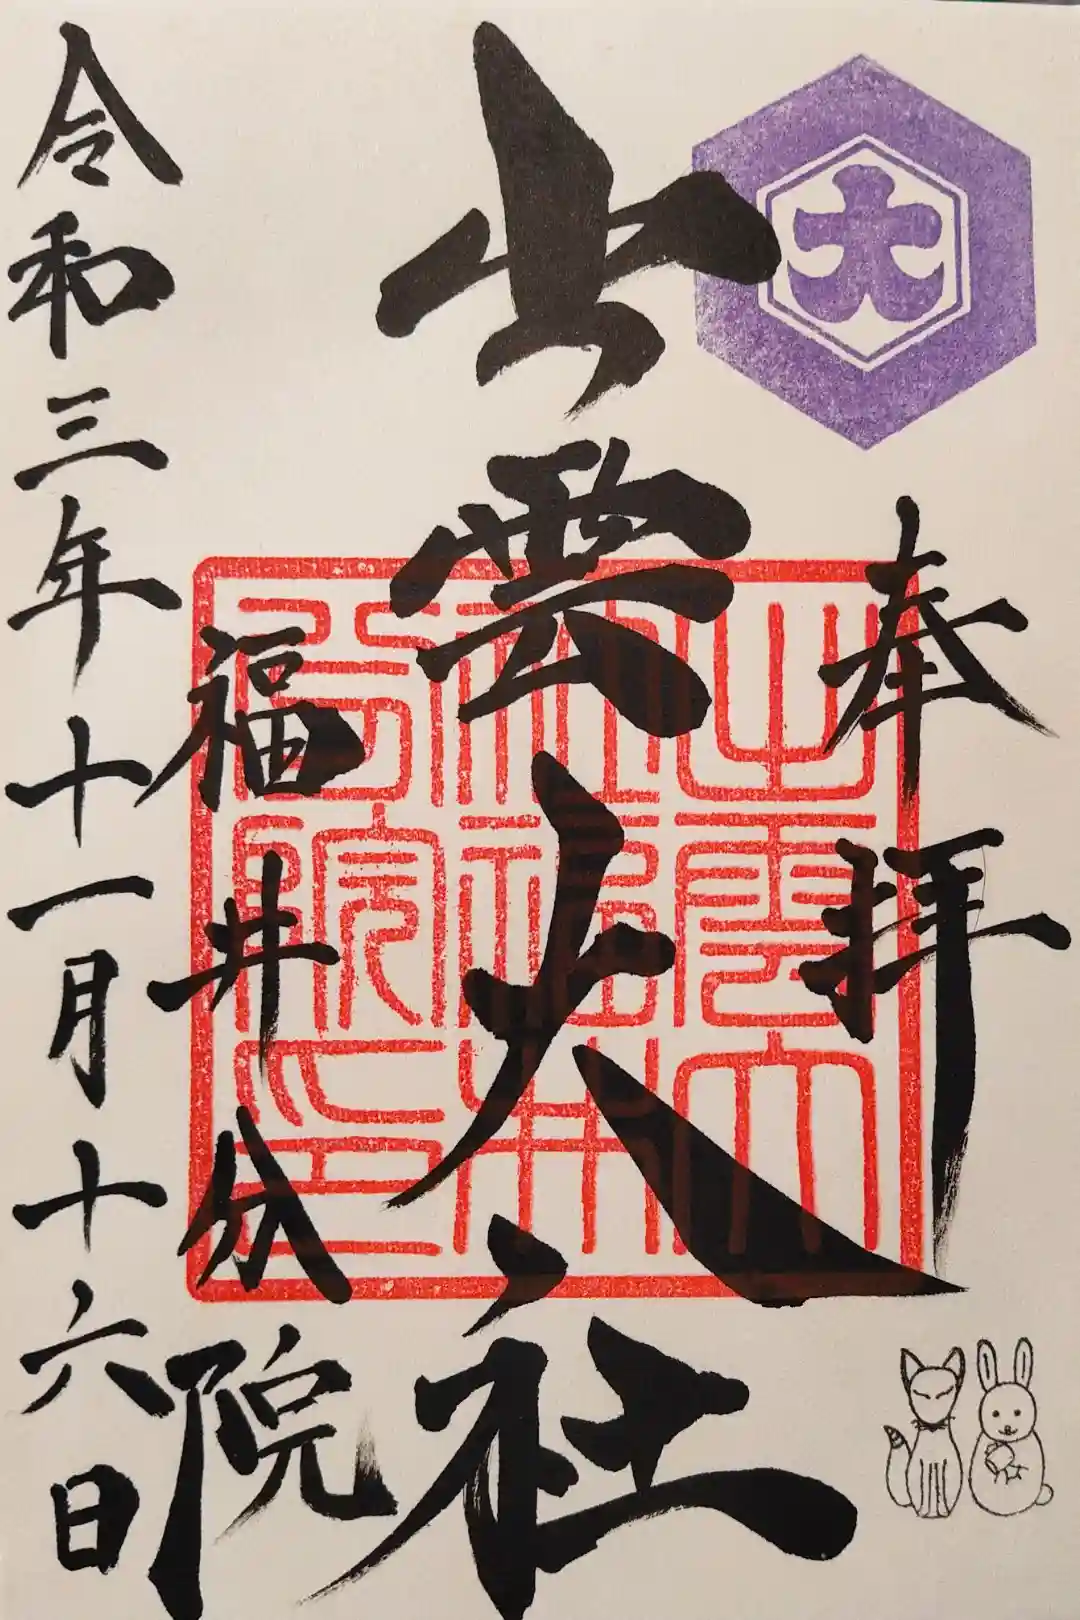 大
奉拝
出雲大社
福井分院
令和三年十一月十六日
出雲大
社福井
分院印